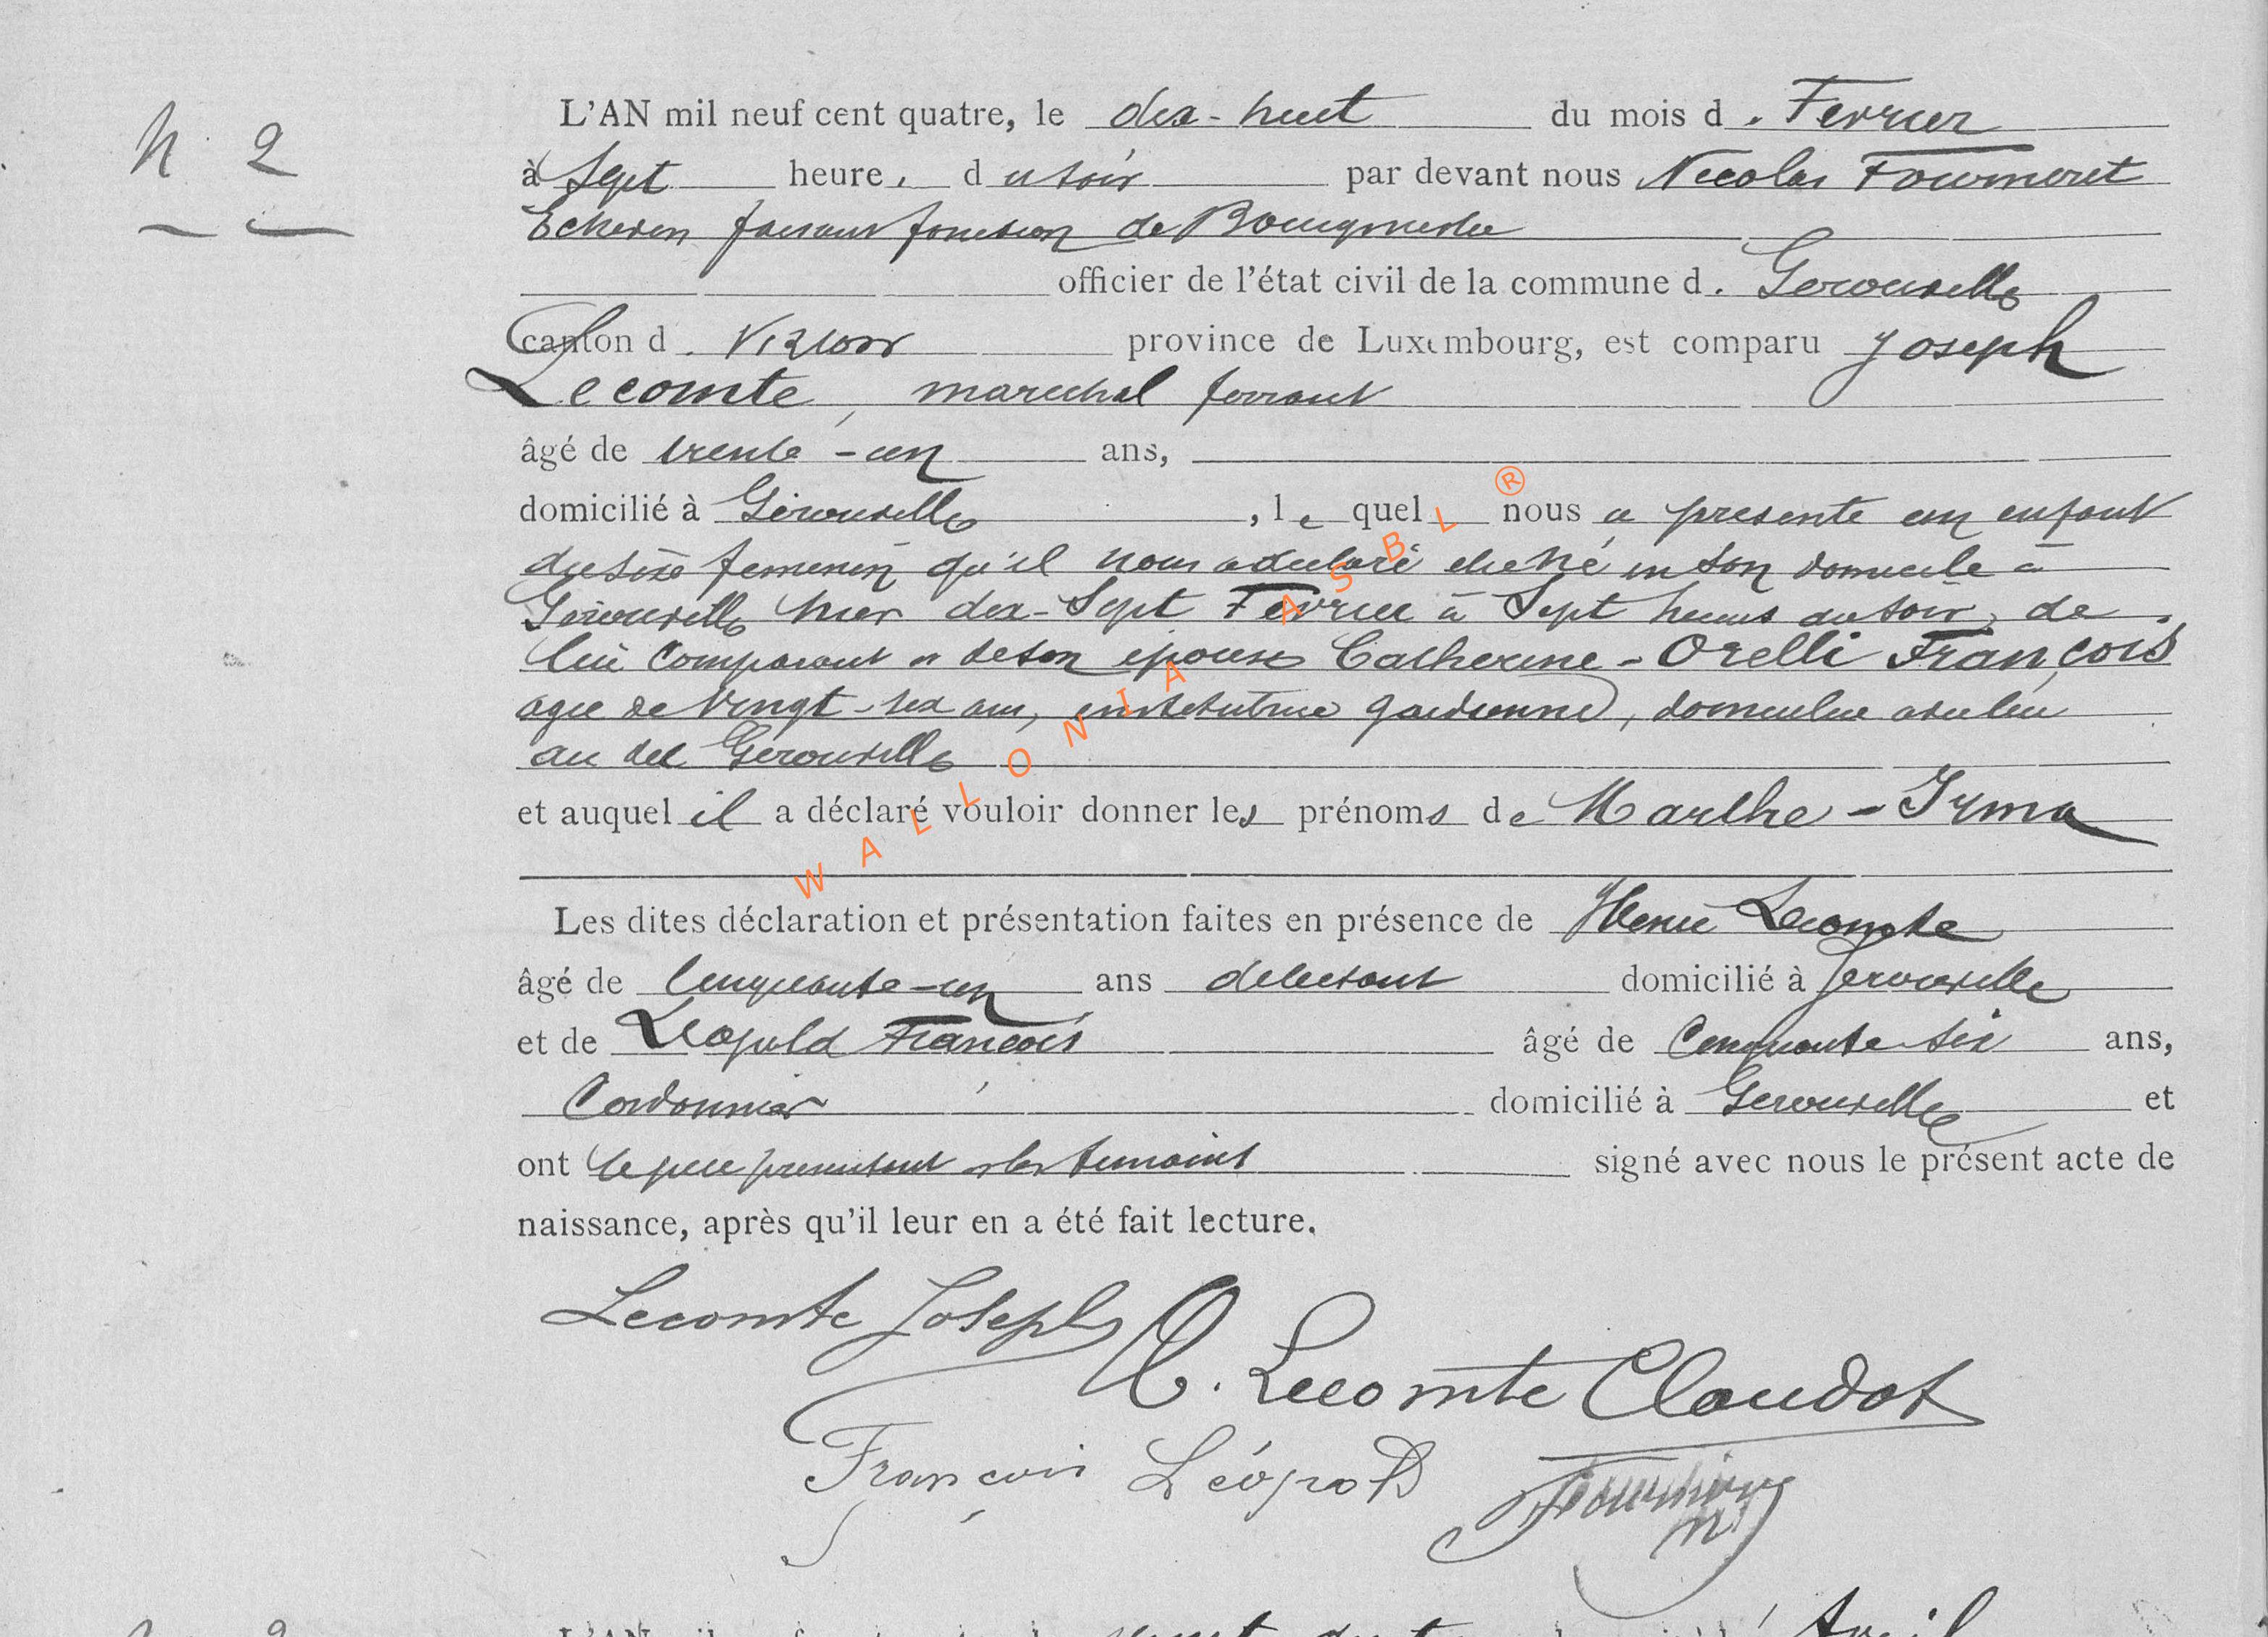 N. 2
L'AN mil neuf cent quatre, le dix-huit du mois d. Fevrier
à Sept heure, du soir par devant nous Nicolas Fourneret
Echevin faisant fonction de Bourgmestre
officier de l'état civil de la commune d. Gerouville
canton d. Virton province de Luxembourg, est comparu Joseph
Lecomte, marechal ferrant
âgé de trente-un ans,
domicilié à Gérouville, le quel nous a presenté un enfant
du sexe feminin qu'il nous a declaré etre né en son domicile à
Gérouville hier dix-Sept Fevrier à Sept heures du soir, de
lui Comparant et de son épouse Catherine-Orelli François
agée de Vingt-six ans, institutrice gardienne, domiciliée avec lui
au dit Gerouville
et auquel il a déclaré vouloir donner les prénoms de Marthe-Irma
Les dites déclaration et présentation faites en présence de Henri Lecomte
âgé de Cinquante-un ans debitant domicilié à Gerouville
et de Leopold François âgé de Cinquante six ans,
Cordonnier domicilié à Gerouville et
ont le pere presentant et les temoins signé avec nous le présent acte de
naissance, après qu'il leur en a été fait lecture.
Lecomte Joseph
Lecomte Claudot
François Léopold
WALLONIA ASBL ®
L'AN Avril